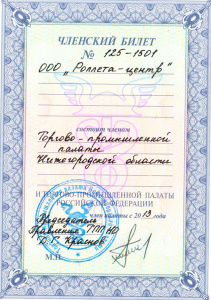 ЧЛЕНСКИЙ БИЛЕТ
№ 125-1501
ООО „Роллета-центр"
состоит членом
Торгово-промышленной
палаты
Нижегородской области
И ТОРГОВО-ПРОМЫШЛЕННОЙ ПАЛАТЫ
РОССИЙСКОЙ ФЕДЕРАЦИИ
член палаты с 2013 года
Председатель
Правления ТПП НО
Д.Г. Краснов
М.П.